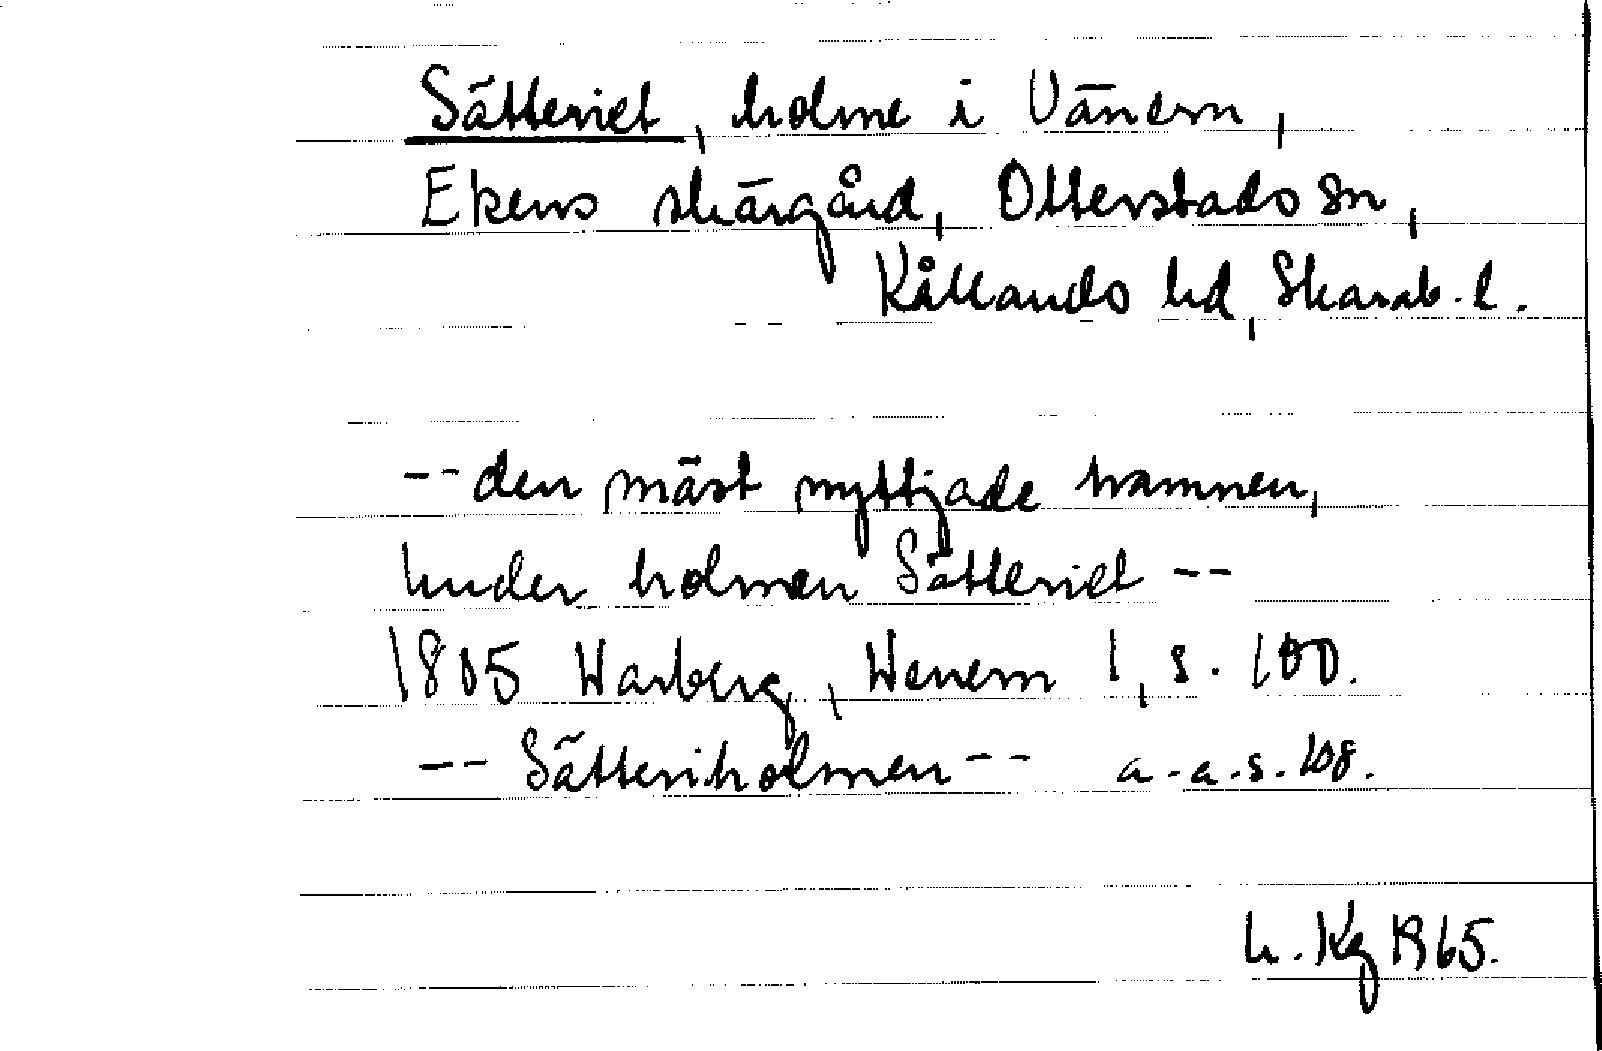 Sätteriet, holme i Vänern,
Ekens skärgård, Otterstads sn,
Kållands hd, Skarab. l.
-- den mäst nyttjade hamnen,
under holmen Sätteriet --
1805 Warberg, Wenern 1, s. 100.
-- Sätteriholmen -- a.a.s. 108.
h. Kg 1965.